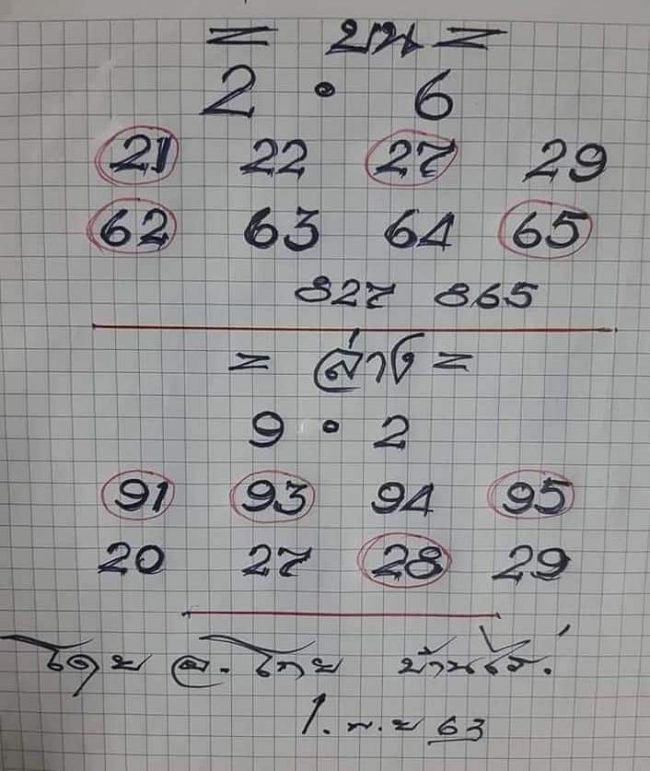 = บน =
2 • 6
21 22 27 29
62 63 64 65
827 865
= ล่าง =
9 • 2
91 93 94 95
20 27 28 29
โดย อ. โทย บ้านไร่
1. พ.ย 63